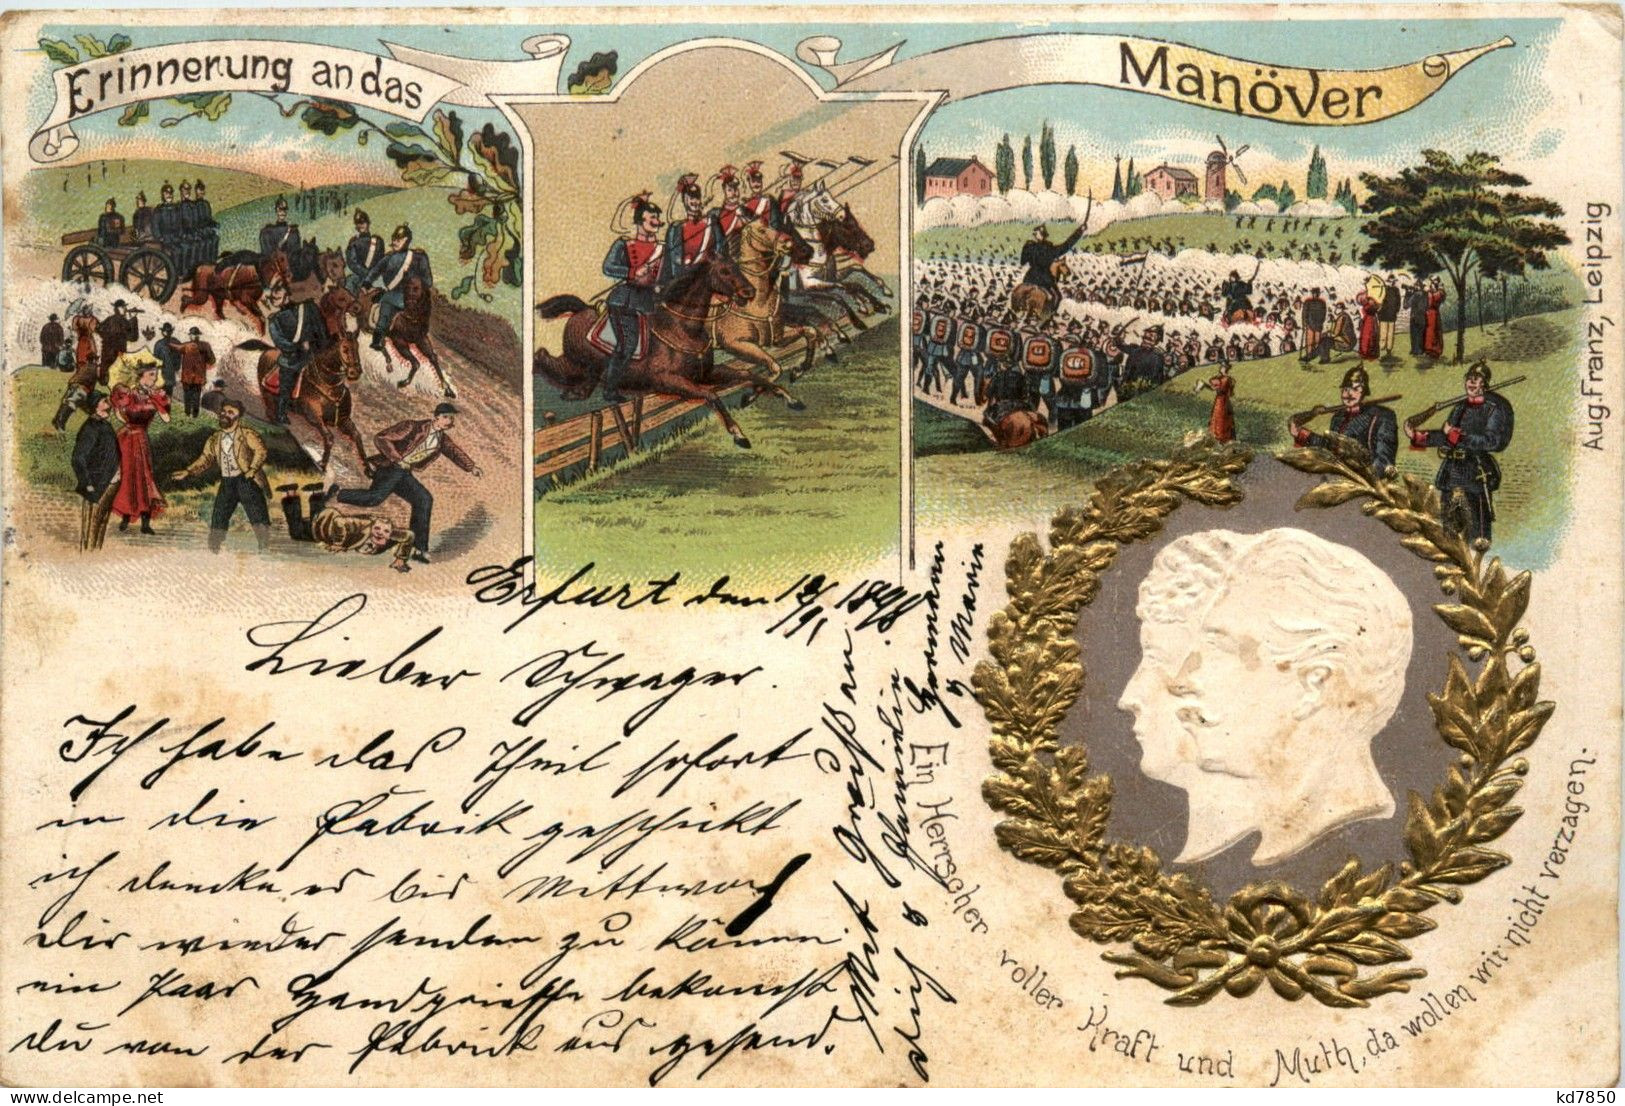 Erinnerung an das
Manöver
Aug. Franz, Leipzig
Erfurt den 1898
Lieber Schwager.
Ich habe das Theil sofort
in die Fabrik geschickt
ich dencke es bis Mittwoch
dir wieder senden zu könen.
ein Paar Handgrieffe bekomst
du von der Fabrick aus gesend.
Mit Gruß an
dich & Familie.
Hermann
& Marie
Ein Herrscher voller Kraft und Muth, da wollen wir nicht verzagen.
kd7850